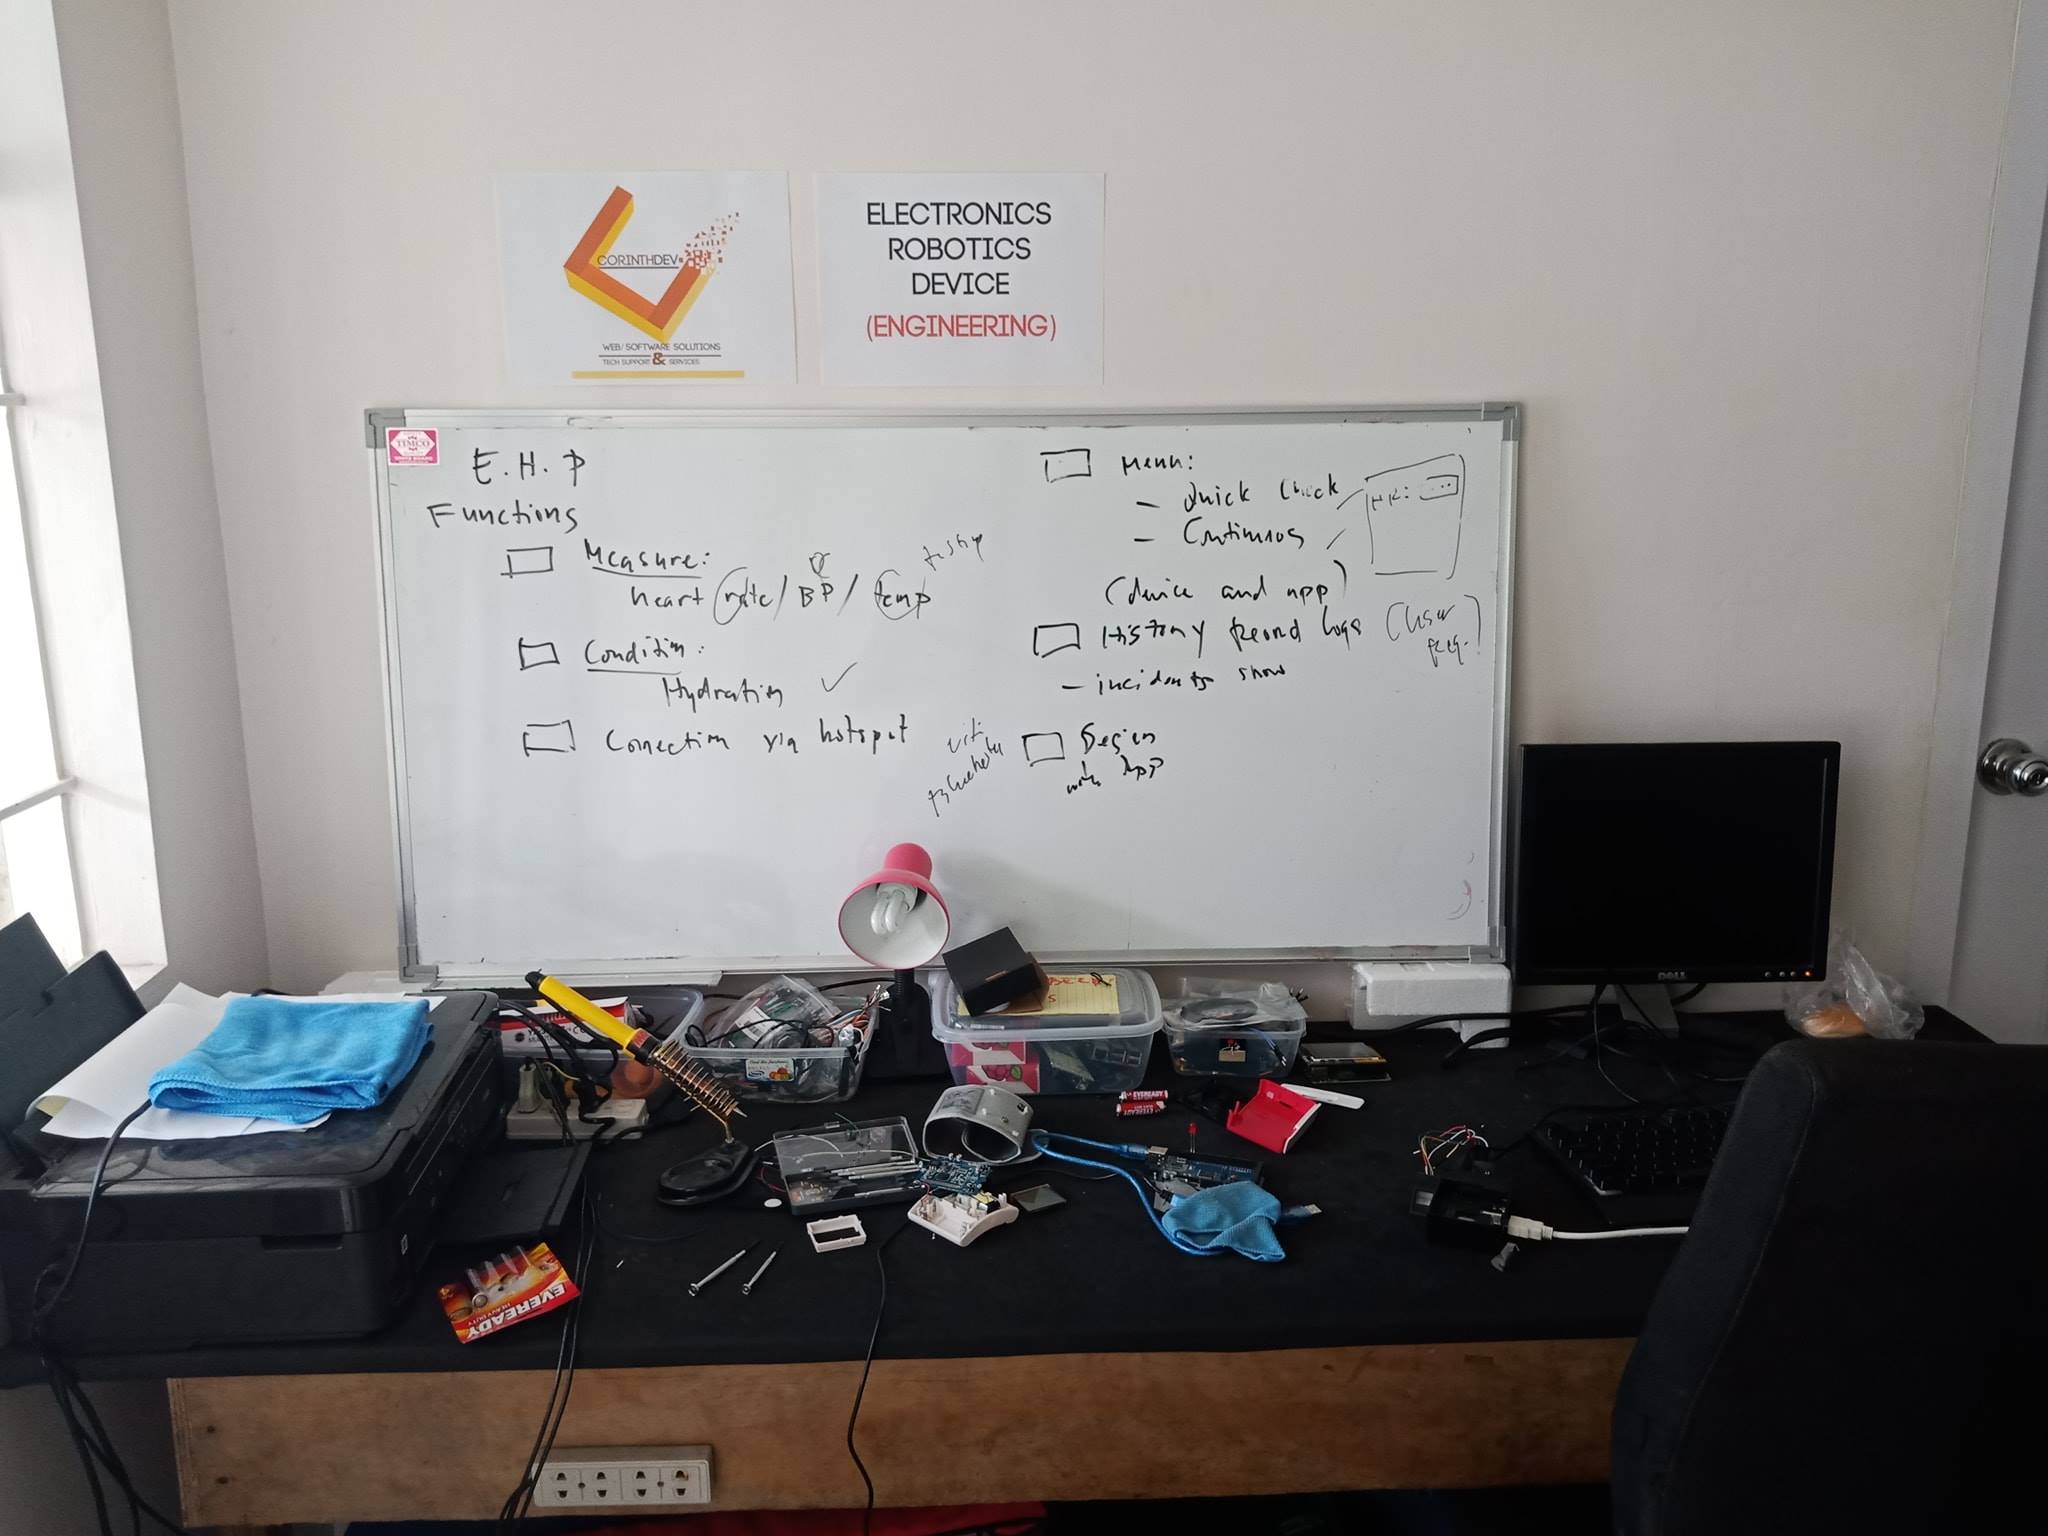 CORINTHDEV
WEB/ SOFTWARE SOLUTIONS
TECH SUPPORT & SERVICES
ELECTRONICS
ROBOTICS
DEVICE
(ENGINEERING)
TIMCO
E. H. P
Functions
Measure:
heart rate / BP / temp
Condition:
Hydration ✓
Connection via hotspot
Menu:
- Quick Check
- Continuous
HR: ...
(device and app)
History Record Logs (User
- incidents show
Design
with App
DELL
EVEREADY
EVEREADY
HEAVY DUTY